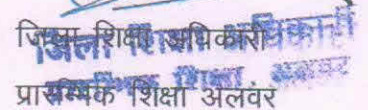 जिला शिक्षा अधिकारी
जिला शिक्षा अधिकारी
प्रारम्भिक शिक्षा अलवर
प्रारम्भिक शिक्षा अलवर